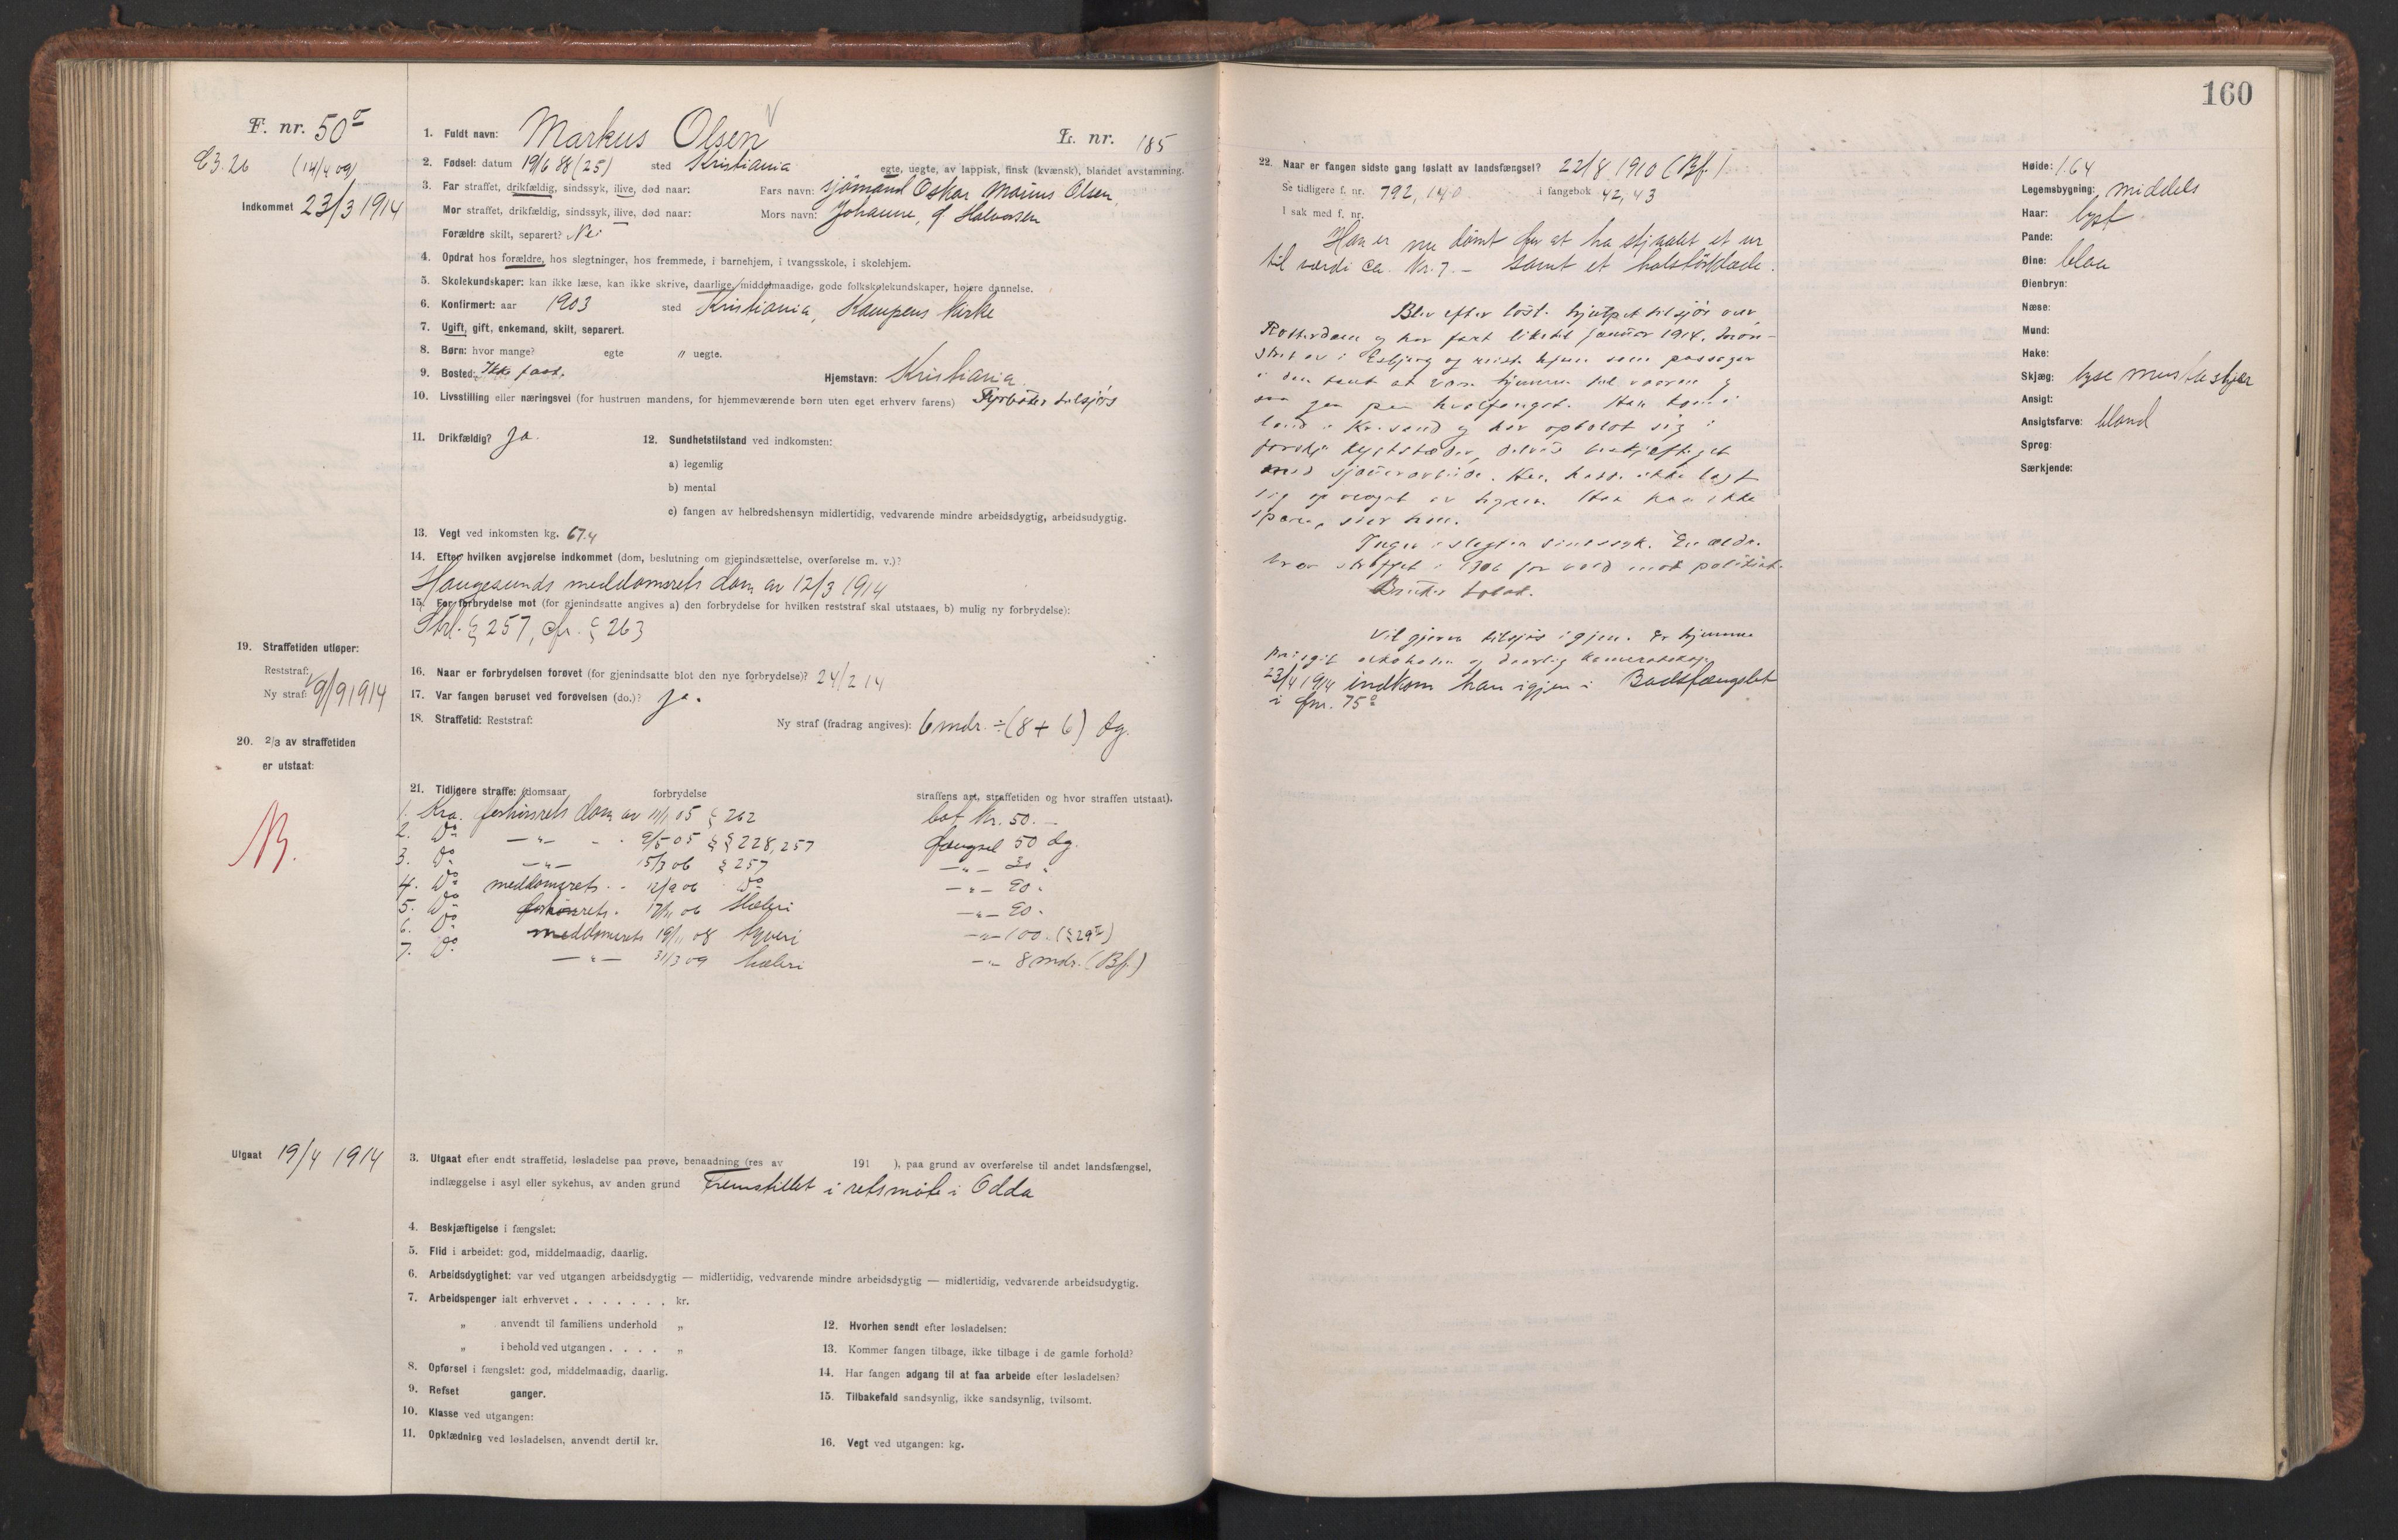 160
F. nr. 50ᴵ
C3.26 (14/4 09)
Indkommet 23/3 1914
1. Fuldt navn: Markus Olsen
L. nr. 185
2. Fødsel: datum 19/6 88 (25) sted Kristiania egte, uegte, av lappisk, finsk (kvænsk), blandet avstamning.
3. Far straffet, drikfældig, sindssyk, ilive, død naar: Fars navn: sjömand Oskar Marius Olsen,
Mor straffet, drikfældig, sindssyk, ilive, død naar: Mors navn: Johanne, f. Halvorsen
Forældre skilt, separert? Nei
4. Opdrat hos forældre, hos slegtninger, hos fremmede, i barnehjem, i tvangsskole, i skolehjem.
5. Skolekundskaper: kan ikke læse, kan ikke skrive, daarlige, middelmaadige, gode folkskolekundskaper, højere dannelse.
6. Konfirmert: aar 1903 sted Kristiania, Kampens Kirke
7. Ugift, gift, enkemand, skilt, separert.
8. Børn: hvor mange? egte " uegte.
9. Bosted: Ikke fast. Hjemstavn: Kristiania
10. Livsstilling eller næringsvei (for hustruen mandens, for hjemmeværende børn uten eget erhverv farens) Fyrböter tilsjös
11. Drikfældig? Ja. 12. Sundhetstilstand ved indkomsten:
a) legemlig
b) mental
c) fangen av helbredshensyn midlertidig, vedvarende mindre arbeidsdygtig, arbeidsudygtig.
13. Vegt ved inkomsten kg. 67.4
14. Efter hvilken avgjørelse indkommet (dom, beslutning om gjenindsættelse, overførelse m. v.)?
Haugesunds meddomsrets dom av 12/3 1914
15. For forbrydelse mot (for gjenindsatte angives a) den forbrydelse for hvilken reststraf skal utstaaes, b) mulig ny forbrydelse):
Strl. § 257, cfr. § 263
19. Straffetiden utløper:
Reststraf:
Ny straf: 9/9 1914
16. Naar er forbrydelsen forøvet (for gjenindsatte blot den nye forbrydelse)? 24/2 14
17. Var fangen beruset ved forøvelsen (do.)? Ja.
18. Straffetid: Reststraf: Ny straf (fradrag angives): 6 mdr. ÷ (8 + 6) dg.
20. 2/3 av straffetiden
er utstaat:
21. Tidligere straffe: (domsaar forbrydelse straffens art, straffetiden og hvor straffen utstaat).
1. Kra. forhörsrets dom av 11/1 05 § 262 bot Kr. 50.—
2. Do — " — 9/5 05 §§ 228, 257 fængsel 50 dg.
3. Do — " — 15/3 06 § 257 — " — 30 "
4. Do meddomsrets 12/9 06 Do — " — 90 "
5. Do forhörsrets 17/11 06 Hæleri — " — 90 "
6. Do meddomsrets 19/11 08 tyveri — " — 100 (§ 29ᴵ)
7. Do — " — 31/3 09 hæleri — " — 8 mdr. (Bf.)
Utgaat 19/4 1914
3. Utgaat efter endt straffetid, løsladelse paa prøve, benaadning (res av 191 ), paa grund av overførelse til andet landsfængsel,
indlæggelse i asyl eller sykehus, av anden grund Fremstillet i retsmöte i Odda
4. Beskjæftigelse i fængslet:
5. Flid i arbeidet: god, middelmaadig, daarlig.
6. Arbeidsdygtighet: var ved utgangen arbeidsdygtig — midlertidig, vedvarende mindre arbeidsdygtig — midlertidig, vedvarende arbeidsudygtig.
7. Arbeidspenger ialt erhvervet . . . . . . . kr.
" anvendt til familiens underhold "
" i behold ved utgangen . . . . "
8. Opførsel i fængslet: god, middelmaadig, daarlig.
9. Refset ganger.
10. Klasse ved utgangen:
11. Opklædning ved løsladelsen, anvendt dertil kr.
12. Hvorhen sendt efter løsladelsen:
13. Kommer fangen tilbage, ikke tilbage i de gamle forhold?
14. Har fangen adgang til at faa arbeide efter løsladelsen?
15. Tilbakefald sandsynlig, ikke sandsynlig, tvilsomt.
16. Vegt ved utgangen: kg.
22. Naar er fangen sidste gang løslatt av landsfængsel? 22/8 1910 (Bf.)
Se tidligere f. nr. 792, 140 i fangebok 42, 43
I sak med f. nr.
Han er nu dömt for at ha stjaalet et ur
til værdi ca. Kr. 7.— samt et halstörklæde.
Blev efter löst. hjulpet tilsjös over
Rotterdam og har fart liketil januar 1914. Mön-
stret av i Esbjerg og reiste hjem som passager
i den tanke at være hjemme til vaaren og
saa gaa paa hvalfangst. Han kom i
land i Kr.sand og har opholdt sig i
forskj. kystbyer, delvis beskjæftiget
med sjauerarbeide. Han hadde ikke lagt
sig op noget av hyren. Han kan ikke
spare, sier han.
Ingen i slegten sindssyk. En ældre
bror straffet i 1906 for vold mot politiet.
Bruker tobak.
Vil gjerne tilsjös igjen. Er hjemme
prisgit alkoholen og daarlig kameratskap.
23/4 1914 indkom han igjen i Bodsfængslet
i fnr. 75
Høide: 1.64
Legemsbygning: middels
Haar: lyst
Pande:
Øine: blaa
Øienbryn:
Næse:
Mund:
Hake:
Skjæg: lyse mustascher
Ansigt:
Ansigtsfarve: blond
Sprog:
Særkjende: